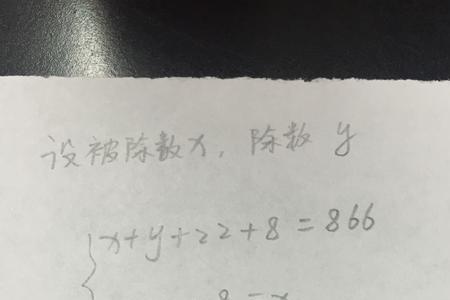 设被除数x, 除数 y
x+y+22+8=866
8=x